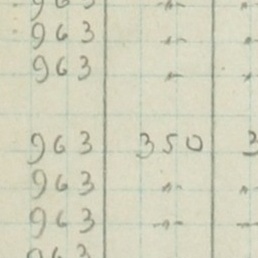 963 "
963 "
963 "
963 350 3
963 " "
963 " "
963